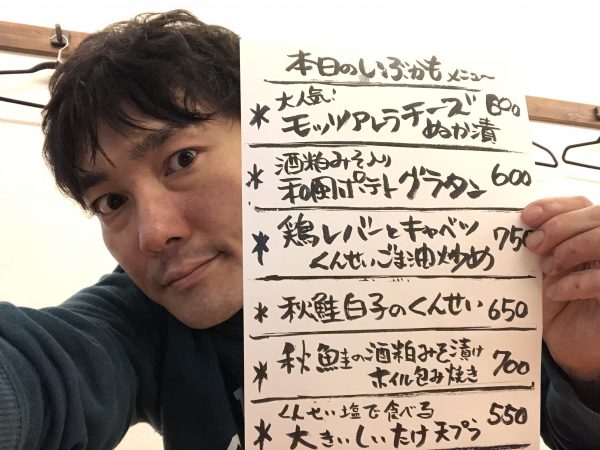 本日のいぶかもメニュー
大人気!
モッツアレラチーズ 600
ぬか漬
酒粕みそ入り
和風ポテトグラタン 600
鶏レバーとキャベツ 750
くんせいごま油炒め
秋鮭白子のくんせい 650
秋鮭の酒粕みそ漬け 700
ホイル包み焼き
くんせい塩で食べる 550
大きいしいたけ天プラ